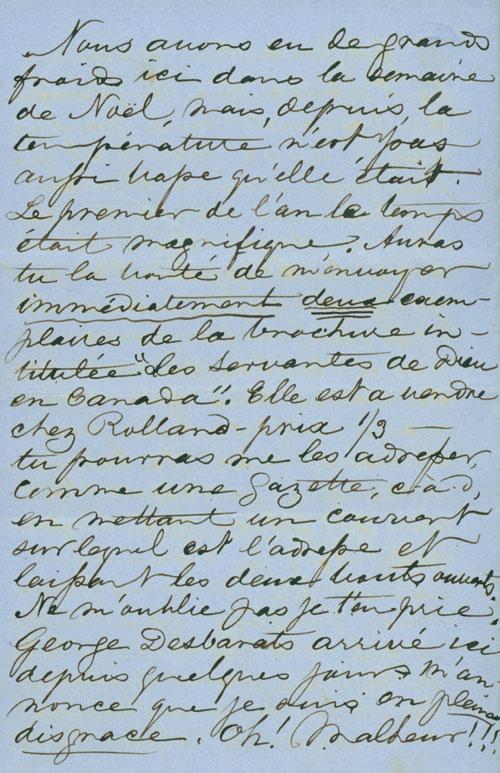 Nous avons eu de grands
froids ici dans la semaine
de Noël, mais, depuis, la
température n'est pas
aussi basse qu'elle était.
Le premier de l'an le temps
était magnifique. Auras
tu la bonté de m'envoyer
immédiatement deux exem-
plaires de la brochure in-
titulée "les servantes de Dieu
en Canada". Elle est a vendre
chez Rolland - prix 1/3 —
tu pourras me les adresser,
comme une gazette, c.à.d,
en mettant un couvert
sur lequel est l'adresse et
laissant les deux bouts ouverts.
Ne m'oublie pas je t'en prie.
George Desbarats arrivé ici
depuis quelques jours m'an-
nonce que je suis en pleine
disgrace. Oh! Malheur!!!